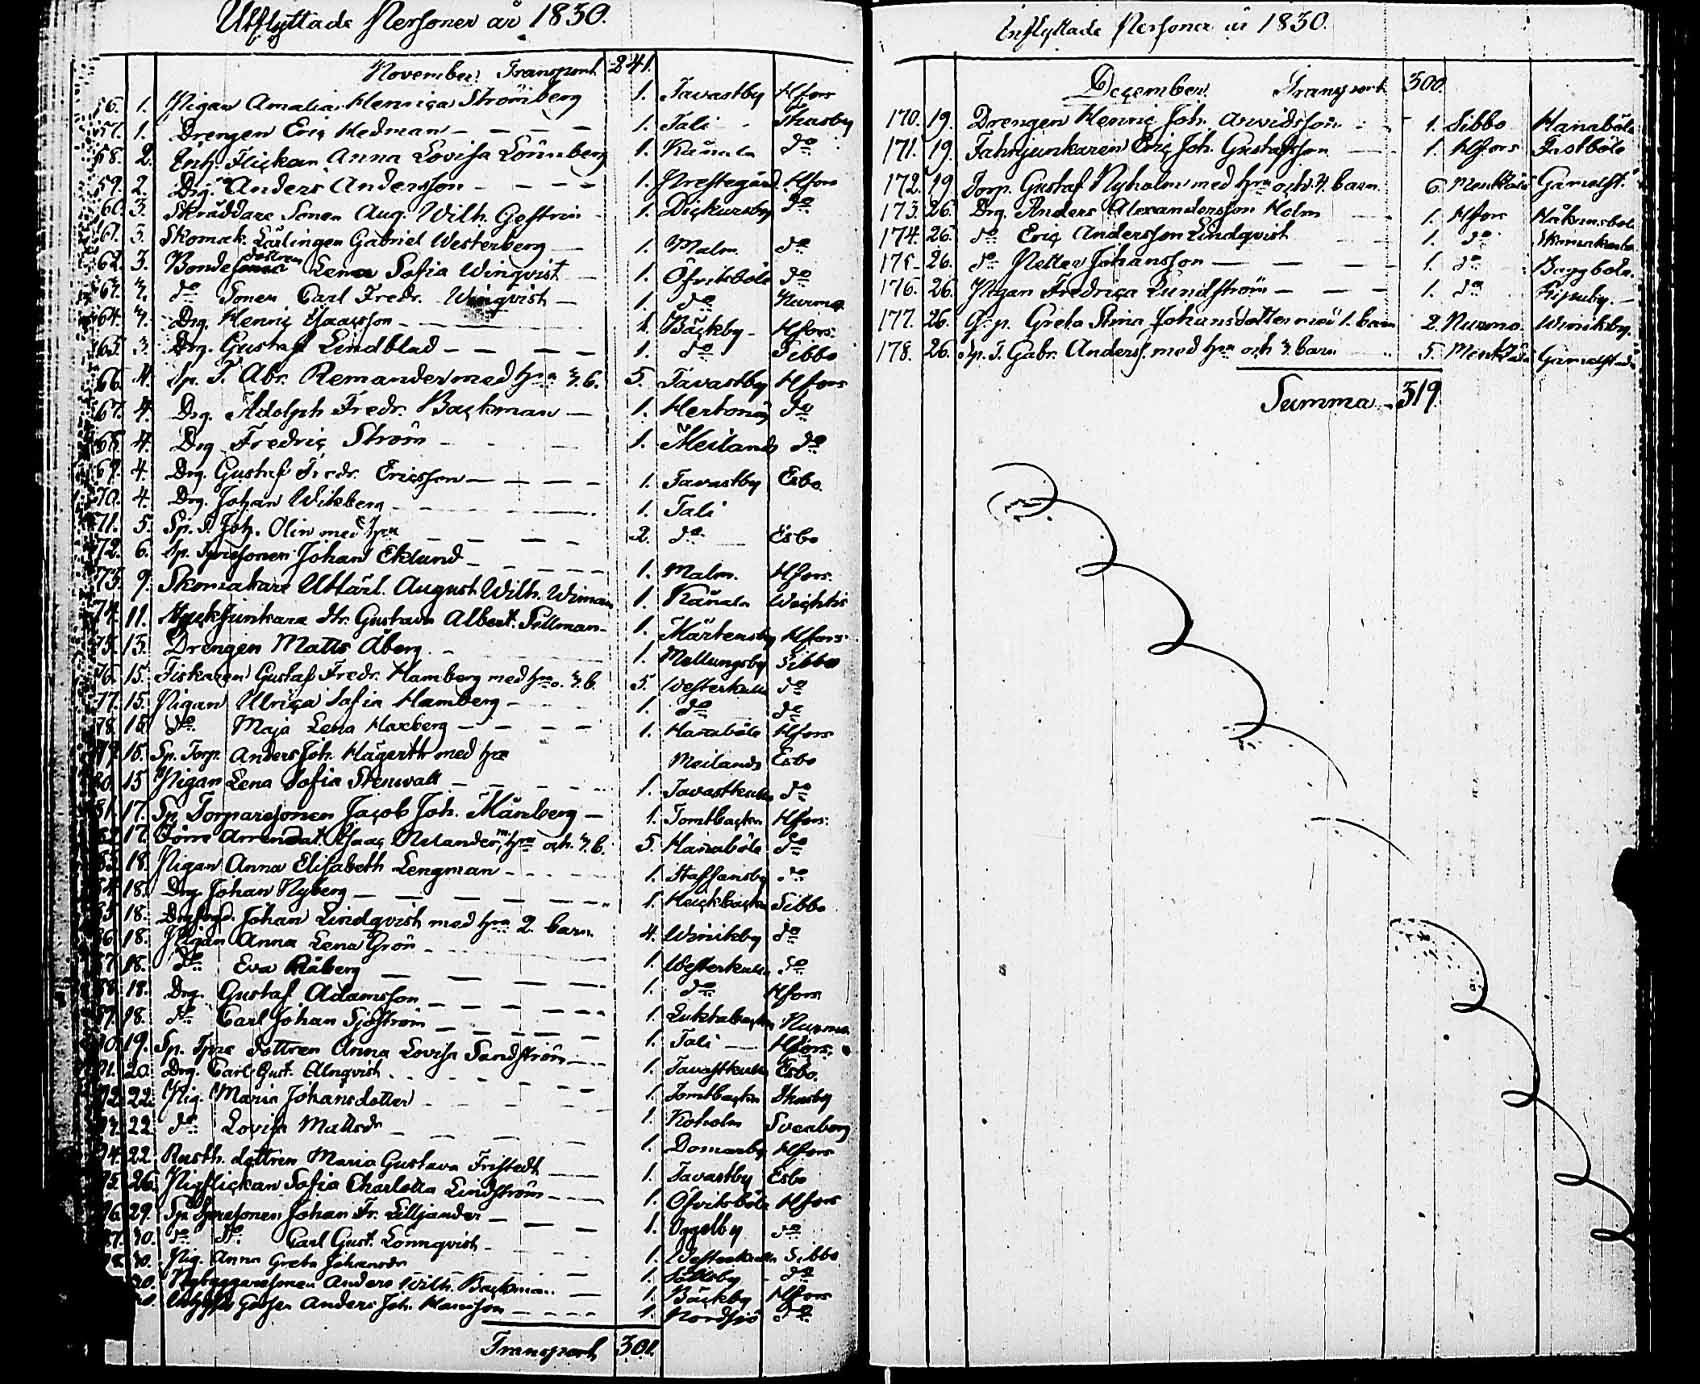 Utflyttade Personer år 1830.
November. Transport 241.
56. 1. Pigan Amalia Henrica Strömberg 1. Tavastby Hfors
57. 1. Drengen Eric Hedman 1. Tali
58. 2. Enk. Flickan Anna Lovisa Lönnberg 1. Kånala do
59. 2. Drg Anders Andersson 1. Prestegård Hfors
60. 3. Skräddare Sonen Aug. Wilh. Gestrin 1. Dickursby do
61. 3. Skomak. Lärlingen Gabriel Westerberg 1. Malm do
62. 3. Bonde dottren Lena Sofia Winqvist 1. Öfvitsböle do
63. 3. do Sonen Carl Fredr. Winqvist 1. do Nurmo
64. 3. Drg. Henric Isacsson 1. Bäckby Hfors
65. 3. Drg. Gustaf Lindblad 1. do Sibbo
66. 4. Sp. T. Abr. Remander med hru 3. b. 5. Tavastby Hfors
67. 4. Drg. Adolph Fredr. Backman 1. Hertonäs do
68. 4. Drg Fredric Ström 1. Meilands do
69. 4. Drg. Gustaf Fredr. Ericsson 1. Tavastby Esbo
70. 4. Drg. Johan Wikberg 1. Tali
71. 5. Sp. T. Joh. Olin med hru 2. do Esbo
72. 6. Sp. Johan Eklund 1. Malm. Hfors.
73. 9. Skomakare Utlärl. August Wilh. Wiman 1. Kånala Wichtis
74. 11. Styckjunkare Hr. Gustava Albert. Sillman 1. Mårtensby Hfors
75. 13. Drengen Matts Åberg 1. Mellungsby Sibbo
76. 15. Fiskaren Gustaf Fredr. Hamberg med hru o. 3. b. 5. Westerkulla do
77. 15. Pigan Ulrica Sofia Hamberg 1. do do
78. 15. do Maja Lena Haxberg 1. Hanaböle Hfors
79. 15. Sp. Torp. Anders Joh. Hägerth med hru Meilands Esbo
80. 15 Pigan Lena Sofia Stenwall 1. Tavastkulla do
81. 17. Sp. Torparesonen Jacob Joh. Månberg 1. Tomtbacka Hfors.
82. 17. Arrendat. Isaac Nelander, m. hru och 3. b. 5. Hanaböle do
83. 18. Pigan Anna Elisabeth Lengman 1. Staffansby do
84. 18. Drg. Johan Nyberg 1. Sibbo
85. 18. Johan Lindqvist med hru 2. barn 4. Winikby do
86. 18. Pigan Anna Lena Grön 1. Westerkulla do
87. 18. do Eva Råberg 1. do Hfors
88. 18. Drg. Gustaf Adamsson 1. Nurmo
89. 18. do Carl Johan Sjöström 1. Tali Hfors.
90. 19. Sp. dottren Anna Lovisa Sandström 1. Tavastkulla Esbo.
91. 20. Drg. Carl Gust. Almqvist 1. Tomtbacka
92. 22. Pig. Maria Johansdotter 1. Koholm Sveaborg
93. 22. do Lovisa Mattsdr 1. Domarby Hfors
94. 22. Rusth. dottren Maria Gustava Fristedt 1. Tavastby Esbo
95. 26. Pigflickan Sofia Charlotta Lindström 1. Öfvitsböle Hfors
96. 29. Sp. Johan Fr. Lilljander 1. Oggelby do
97. 30. do do Carl Gust. Lönnqvist 1. Westerkulla Sibbo
30. Pig. Anna Greta Johansdr 1. do
30. Nybyggaresonen Anders Wilh. Backman 1. Bäckby Hfors
Anders Joh. Hansson 1. Nordsjö do
Transport 301.
Inflyttade Personer år 1830.
December. Transport 300.
170. 19. Drengen Henric Joh. Arvidsson 1. Sibbo Hanaböle
171. 19. Fahnjunkaren Eric Joh. Gustafsson 1. Hfors Fastböle
172. 19. Torp. Gustaf Nyholm med hru och 4. barn 6. Gamelst.
173. 26. Drg. Anders Alexandersson Holm 1. Hfors Håkansböle
174. 26. do Eric Andersson Lindqvist 1. do
175. 26. do Petter Johansson 1. do Baggböle.
176. 26. Pigan Fredrica Lundström 1. do
177. 26. Greta Stina Johansdotter med 1. barn 2. Nurmo. Winikby.
178. 26. Sp. T. Gabr. Anderss. med hru och 3. barn 5. Gamelstad
Summa 319.